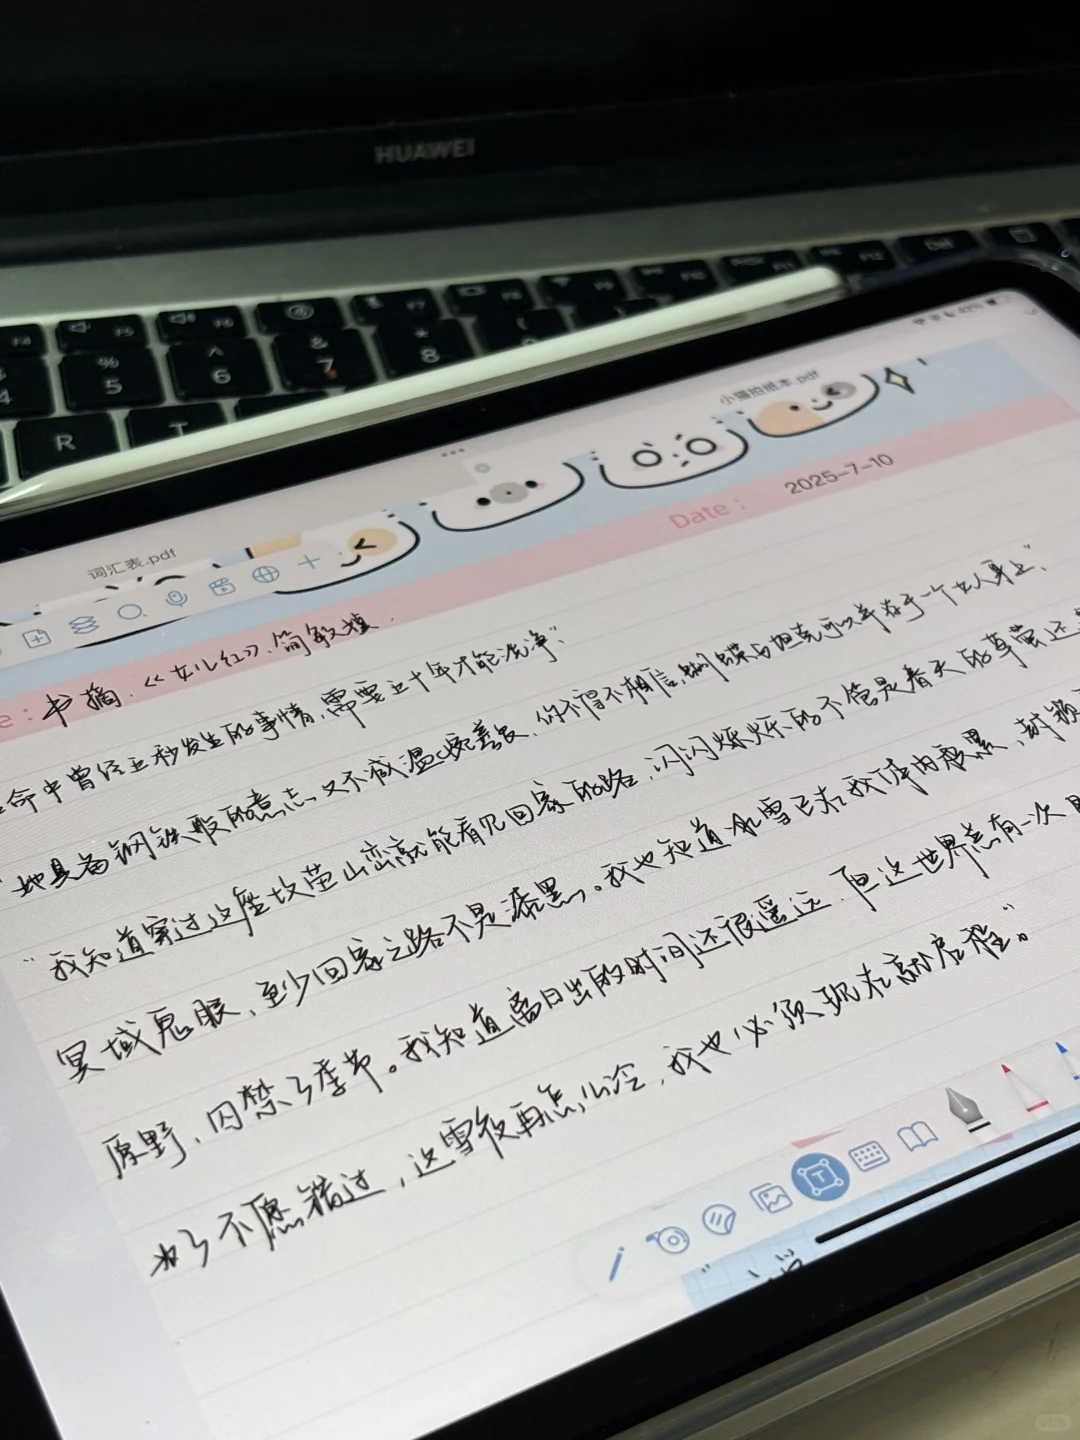 HUAWEI
F5
F6
F7
F8
5
6
&
7
*
8
R
T
小猫拍纸本.pdf
词汇表.pdf
Date：
2025-7-10
e：书摘.《女儿红》.简敏媜.
命中曾经五秒发生的事情,需要五十年才能洗净"
"她具备钢铁般的意志,又不减温婉善良,你不得不相信,蝴蝶与坦克可以并存于一个女人身上".
"我知道穿过这座坟茔山峦就能看见回家的路,闪闪烁烁的不管是春天的草萤还是
冥域鬼眼,至少回家之路不是漆黑。我也知道冰雪已在我体内积累,封锁
原野,囚禁了季节。我知道离日出的时间还很遥远,但这世界总有一次
为了不愿错过,这雪夜再怎么冷,我也必须现在就启程。"